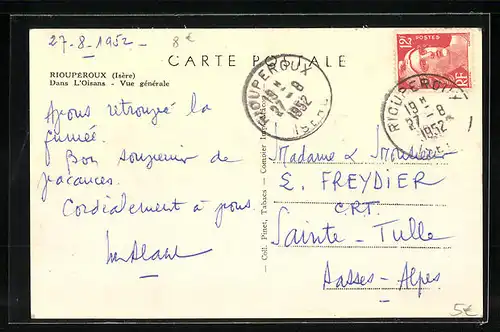 27-8-1952-
8€
CARTE POSTALE
RIOUPEROUX (Isère)
Dans L'Oisans - Vue générale
12F
POSTES
RF
RIOUPEROUX
27-8
1952
ISERE
RIOUPEROUX
19H
27-8
1952
ISERE
Avons retrouvé la
fumée.
Bon souvenir de
vacances.
Cordialement à vous.
Coll. Pinet, Tabacs -
Madame & Monsieur
E. FREYDIER
C.R.T.
Sainte-Tulle
Basses-Alpes
5€